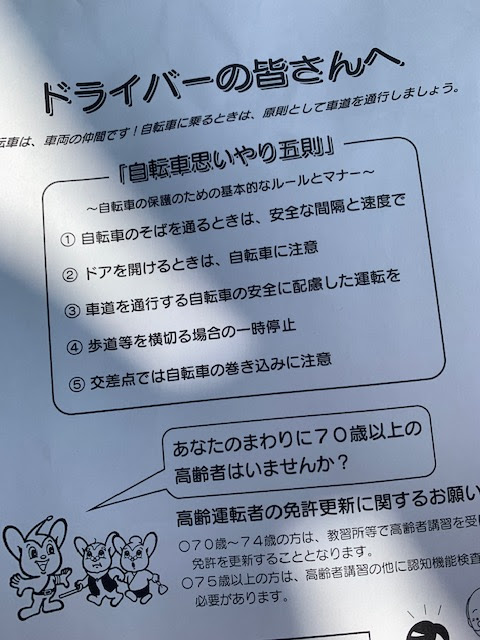 ドライバーの皆さんへ
転車は、車両の仲間です！自転車に乗るときは、原則として車道を通行しましょう。
「自転車思いやり五則」
～自転車の保護のための基本的なルールとマナー～
① 自転車のそばを通るときは、安全な間隔と速度で
② ドアを開けるときは、自転車に注意
③ 車道を通行する自転車の安全に配慮した運転を
④ 歩道等を横切る場合の一時停止
⑤ 交差点では自転車の巻き込みに注意
あなたのまわりに７０歳以上の
高齢者はいませんか？
高齢運転者の免許更新に関するお願い
○７０歳～７４歳の方は、教習所等で高齢者講習を受
免許を更新することとなります。
○７５歳以上の方は、高齢者講習の他に認知機能検査
必要があります。